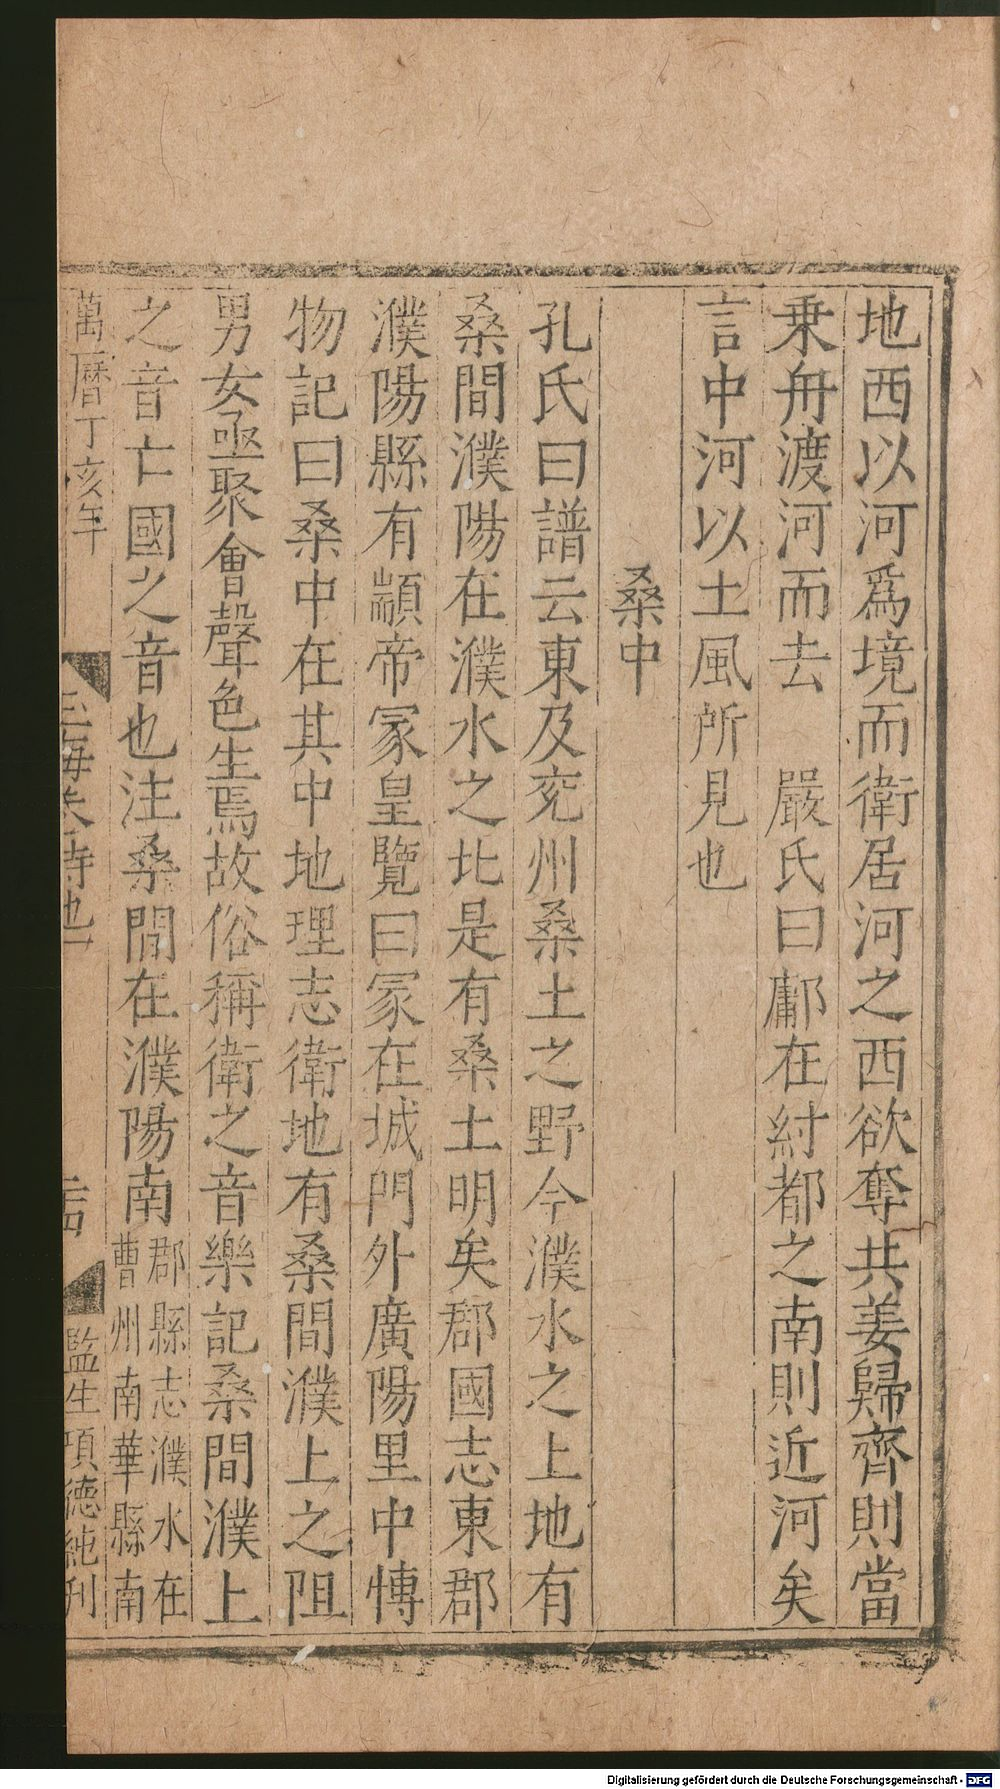 地西以河爲境而衛居河之西欲奪共姜歸齊則當
乗舟渡河而去　嚴氏曰鄘在紂都之南則近河矣
言中河以土風所見也
桑中
孔氏曰譜云東及兖州桑土之野今濮水之上地有
桑間濮陽在濮水之北是有桑土明矣郡國志東郡
濮陽縣有顓帝冢皇覽曰冢在城門外廣陽里中博
物記曰桑中在其中地理志衛地有桑間濮上之阻
男女亟聚會聲色生焉故俗稱衛之音樂記桑間濮上
之音亡國之音也注桑間在濮陽南
郡縣志濮水在
曹州南華縣南
萬曆丁亥年
玉海矣詩地一
監生項德純刋
Digitalisierung gefördert durch die Deutsche Forschungsgemeinschaft - DFG